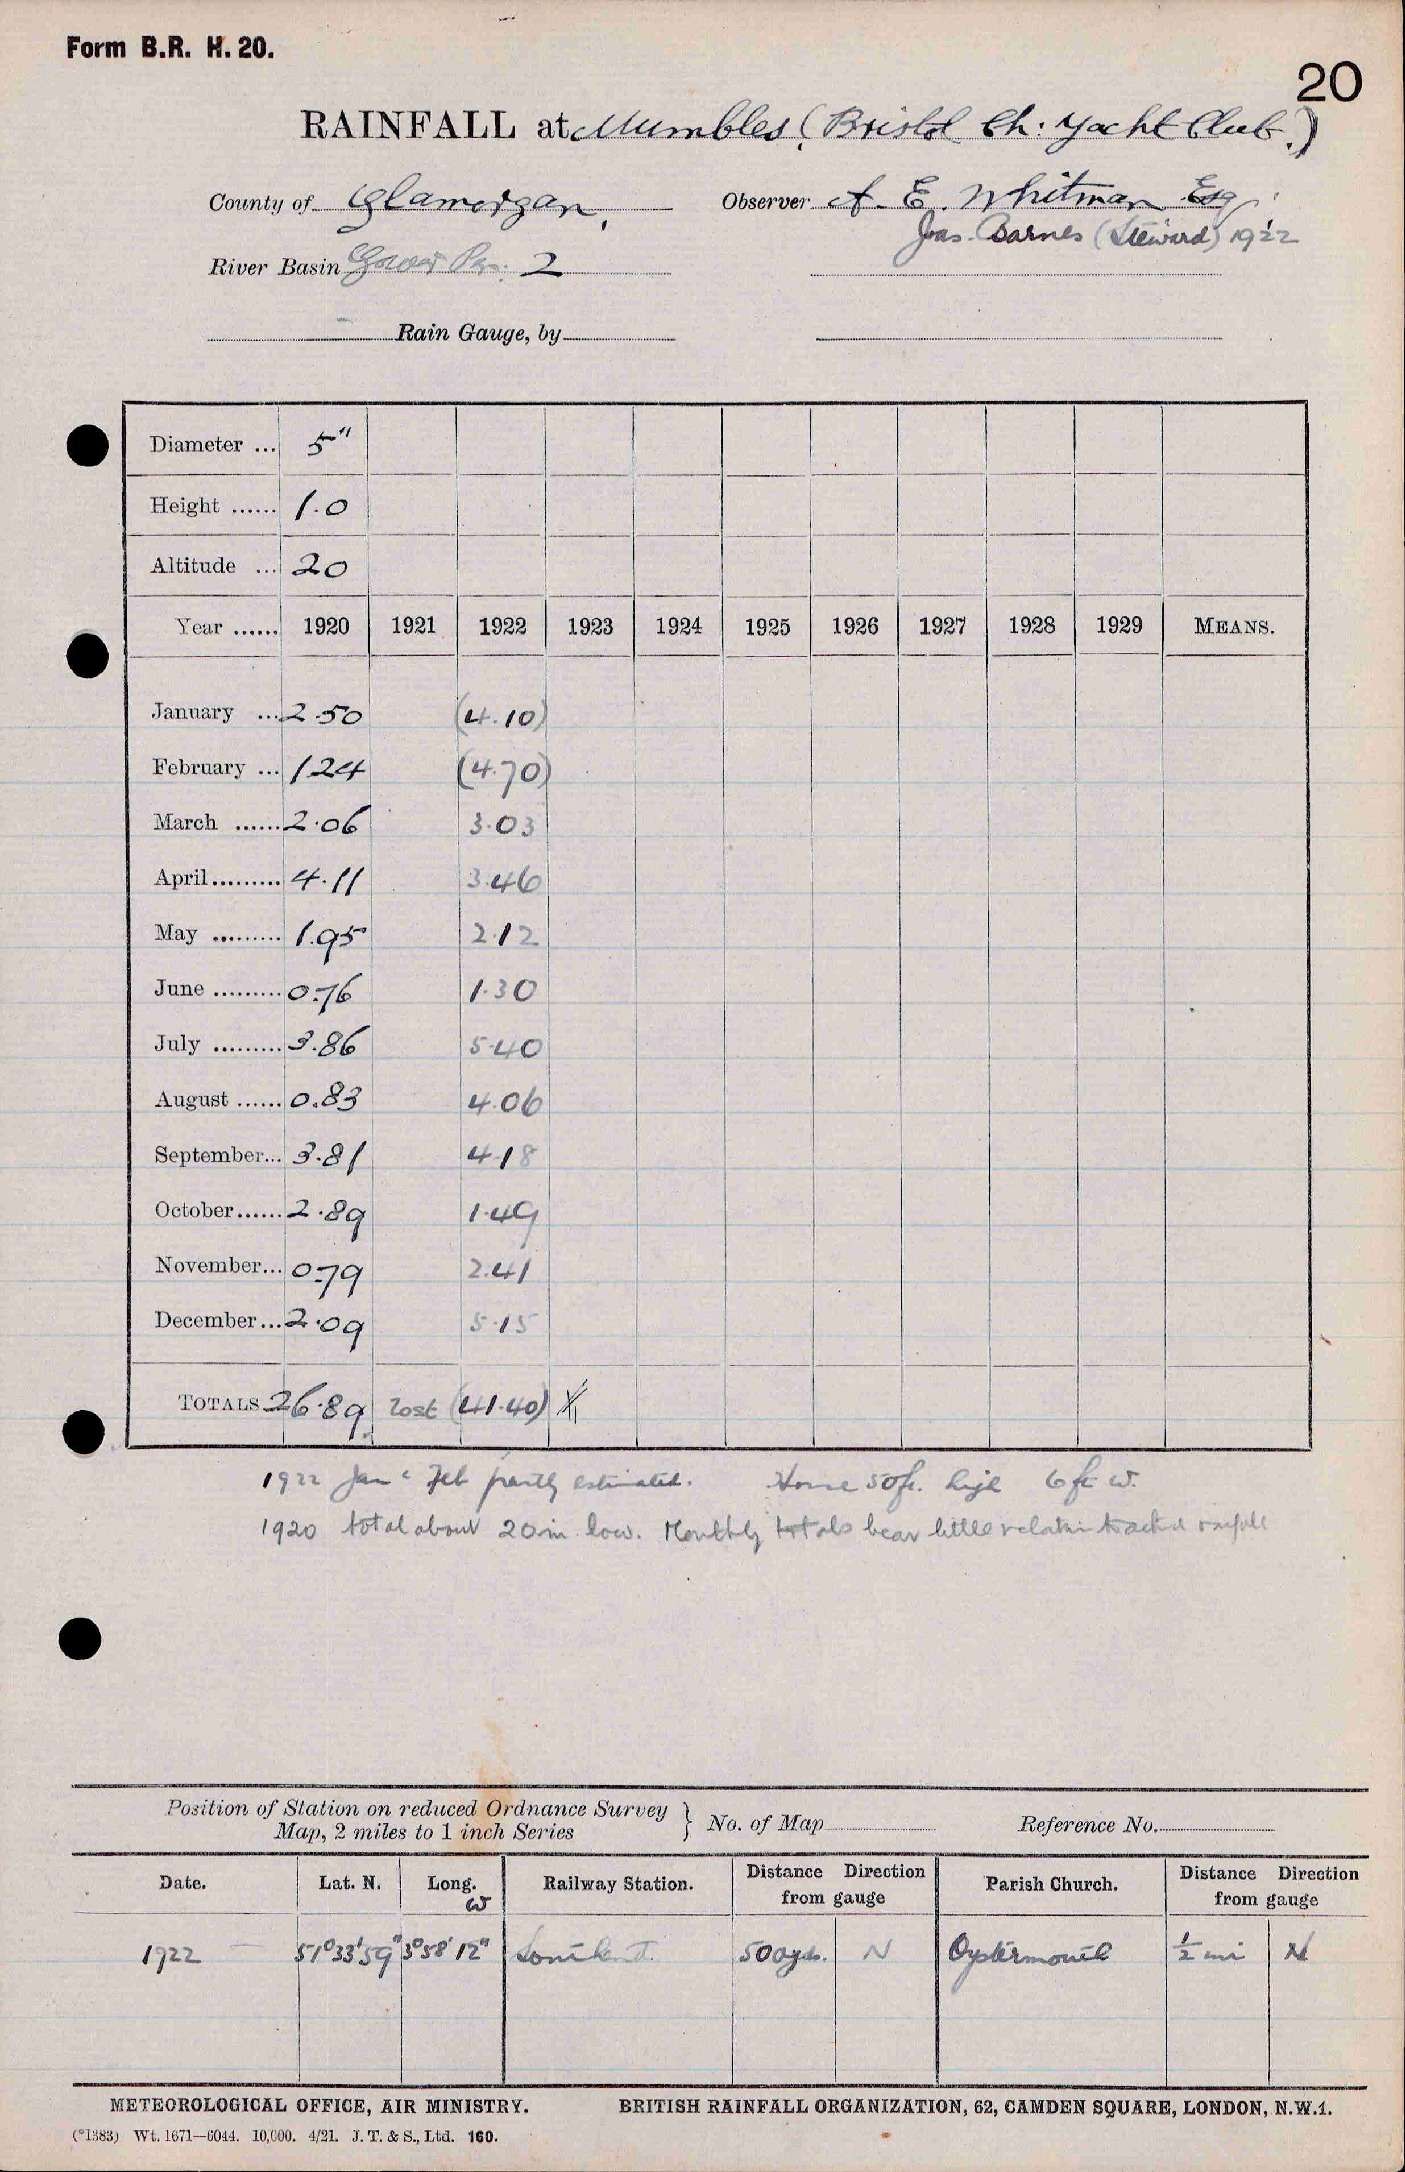 Form B.R. H. 20.
20
RAINFALL at Mumbles (Bristol Ch: Yacht Club.)
County of Glamorgan, Observer A. E. Whitman Esq
Jas. Barnes (Steward) 1922
River Basin Gower Pen. 2
Rain Gauge, by
Diameter ... 5"
Height ...... 1.0
Altitude ... 20
Year ...... 1920 1921 1922 1923 1924 1925 1926 1927 1928 1929 MEANS.
January ... 2.50 (4.10)
February ... 1.24 (4.70)
March ...... 2.06 3.03
April......... 4.11 3.46
May ......... 1.95 2.12
June ......... 0.76 1.30
July ......... 3.86 5.40
August ...... 0.83 4.06
September... 3.81 4.18
October...... 2.89 1.49
November... 0.79 2.41
December... 2.09 5.15
TOTALS 26.89 lost (41.40)
1922 Jan & Feb partly estimated. House 50ft. high 6ft W.
1920 total about 20in low. Monthly totals bear little relation to actual rainfall
Position of Station on reduced Ordnance Survey
Map, 2 miles to 1 inch Series } No. of Map Reference No.
Date. Lat. N. Long. W Railway Station. Distance Direction from gauge Parish Church. Distance Direction from gauge
1922 51°33'59" 3°58'12" 500yds. N Oystermouth ½ mi N
METEOROLOGICAL OFFICE, AIR MINISTRY. BRITISH RAINFALL ORGANIZATION, 62, CAMDEN SQUARE, LONDON, N.W.1.
(*1383) Wt. 1671—6044. 10,000. 4/21. J. T. & S., Ltd. 160.